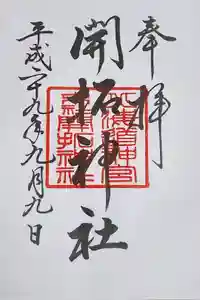 奉拝
開拓神社
平成二十九年九月九日
北海道神宮
末社開拓神社